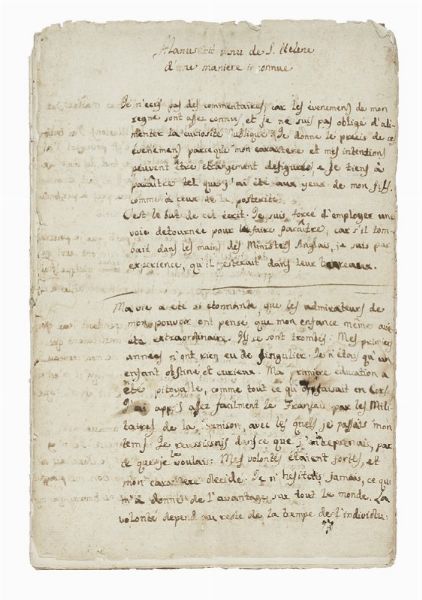 Manuscrit venu de S. Helene
d'une maniere inconnue
Je n'ecris pas des commentaires, car les évenemens de mon
regne sont assez connus, et je ne suis pas obligé d'ali-
menter la curiosité publique. Je donne le precis de ces
évenemens parceque mon caractere et mes intentions
peuvent être etrangement defigurés, e je tiens à
paraître tel que j'ai été aux yeux de mon fils,
comme à ceux de la posterité.
C'est le but de cet écrit. Je suis forcé d'employer une
voie detournée pour le faire paraître, car s'il tom-
bait dans les mains des Ministres Anglais, je sais par
experience, qu'il resterait dans leur bureaux.
Ma vie a été si étonnante, que les admirateurs de
mon pouvoir ont pensé, que mon enfance même avait
été extraordinaire. Ils se sont trompés. Mes premieres
années n'ont rien eu de singulier. Je n'étais qu'un
enfant obstiné et curieux. Ma premiere education a
été pitoyable, comme tout ce qu'on faisait en Corse
J'ai appris assez facilement le Français par les Mili-
taires de la garnison, avec les quels je passais mon
tems. Je reussissais dans ce que j'entreprenais, par-
ce que je le voulais. Mes volontés étaient fortes, et
mon caractere decidé. Je n'hésitais jamais, ce qui
m'a donné de l'avantage sur tout le monde. La
volonté depend au reste de la trempe de l'individu: